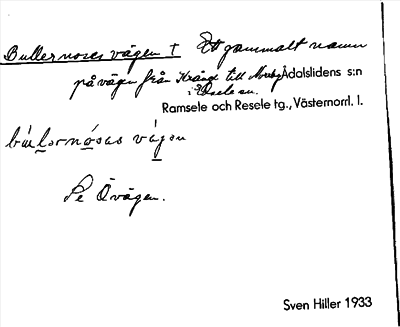 Bullernoses vägen † Ett gammalt namn
på vägen från Krånge till Moreby Ådalslidens s:n
i Resele sn.
Ramsele och Resele tg., Västernorrl. l.
vägen
Se Övägen.
Sven Hiller 1933